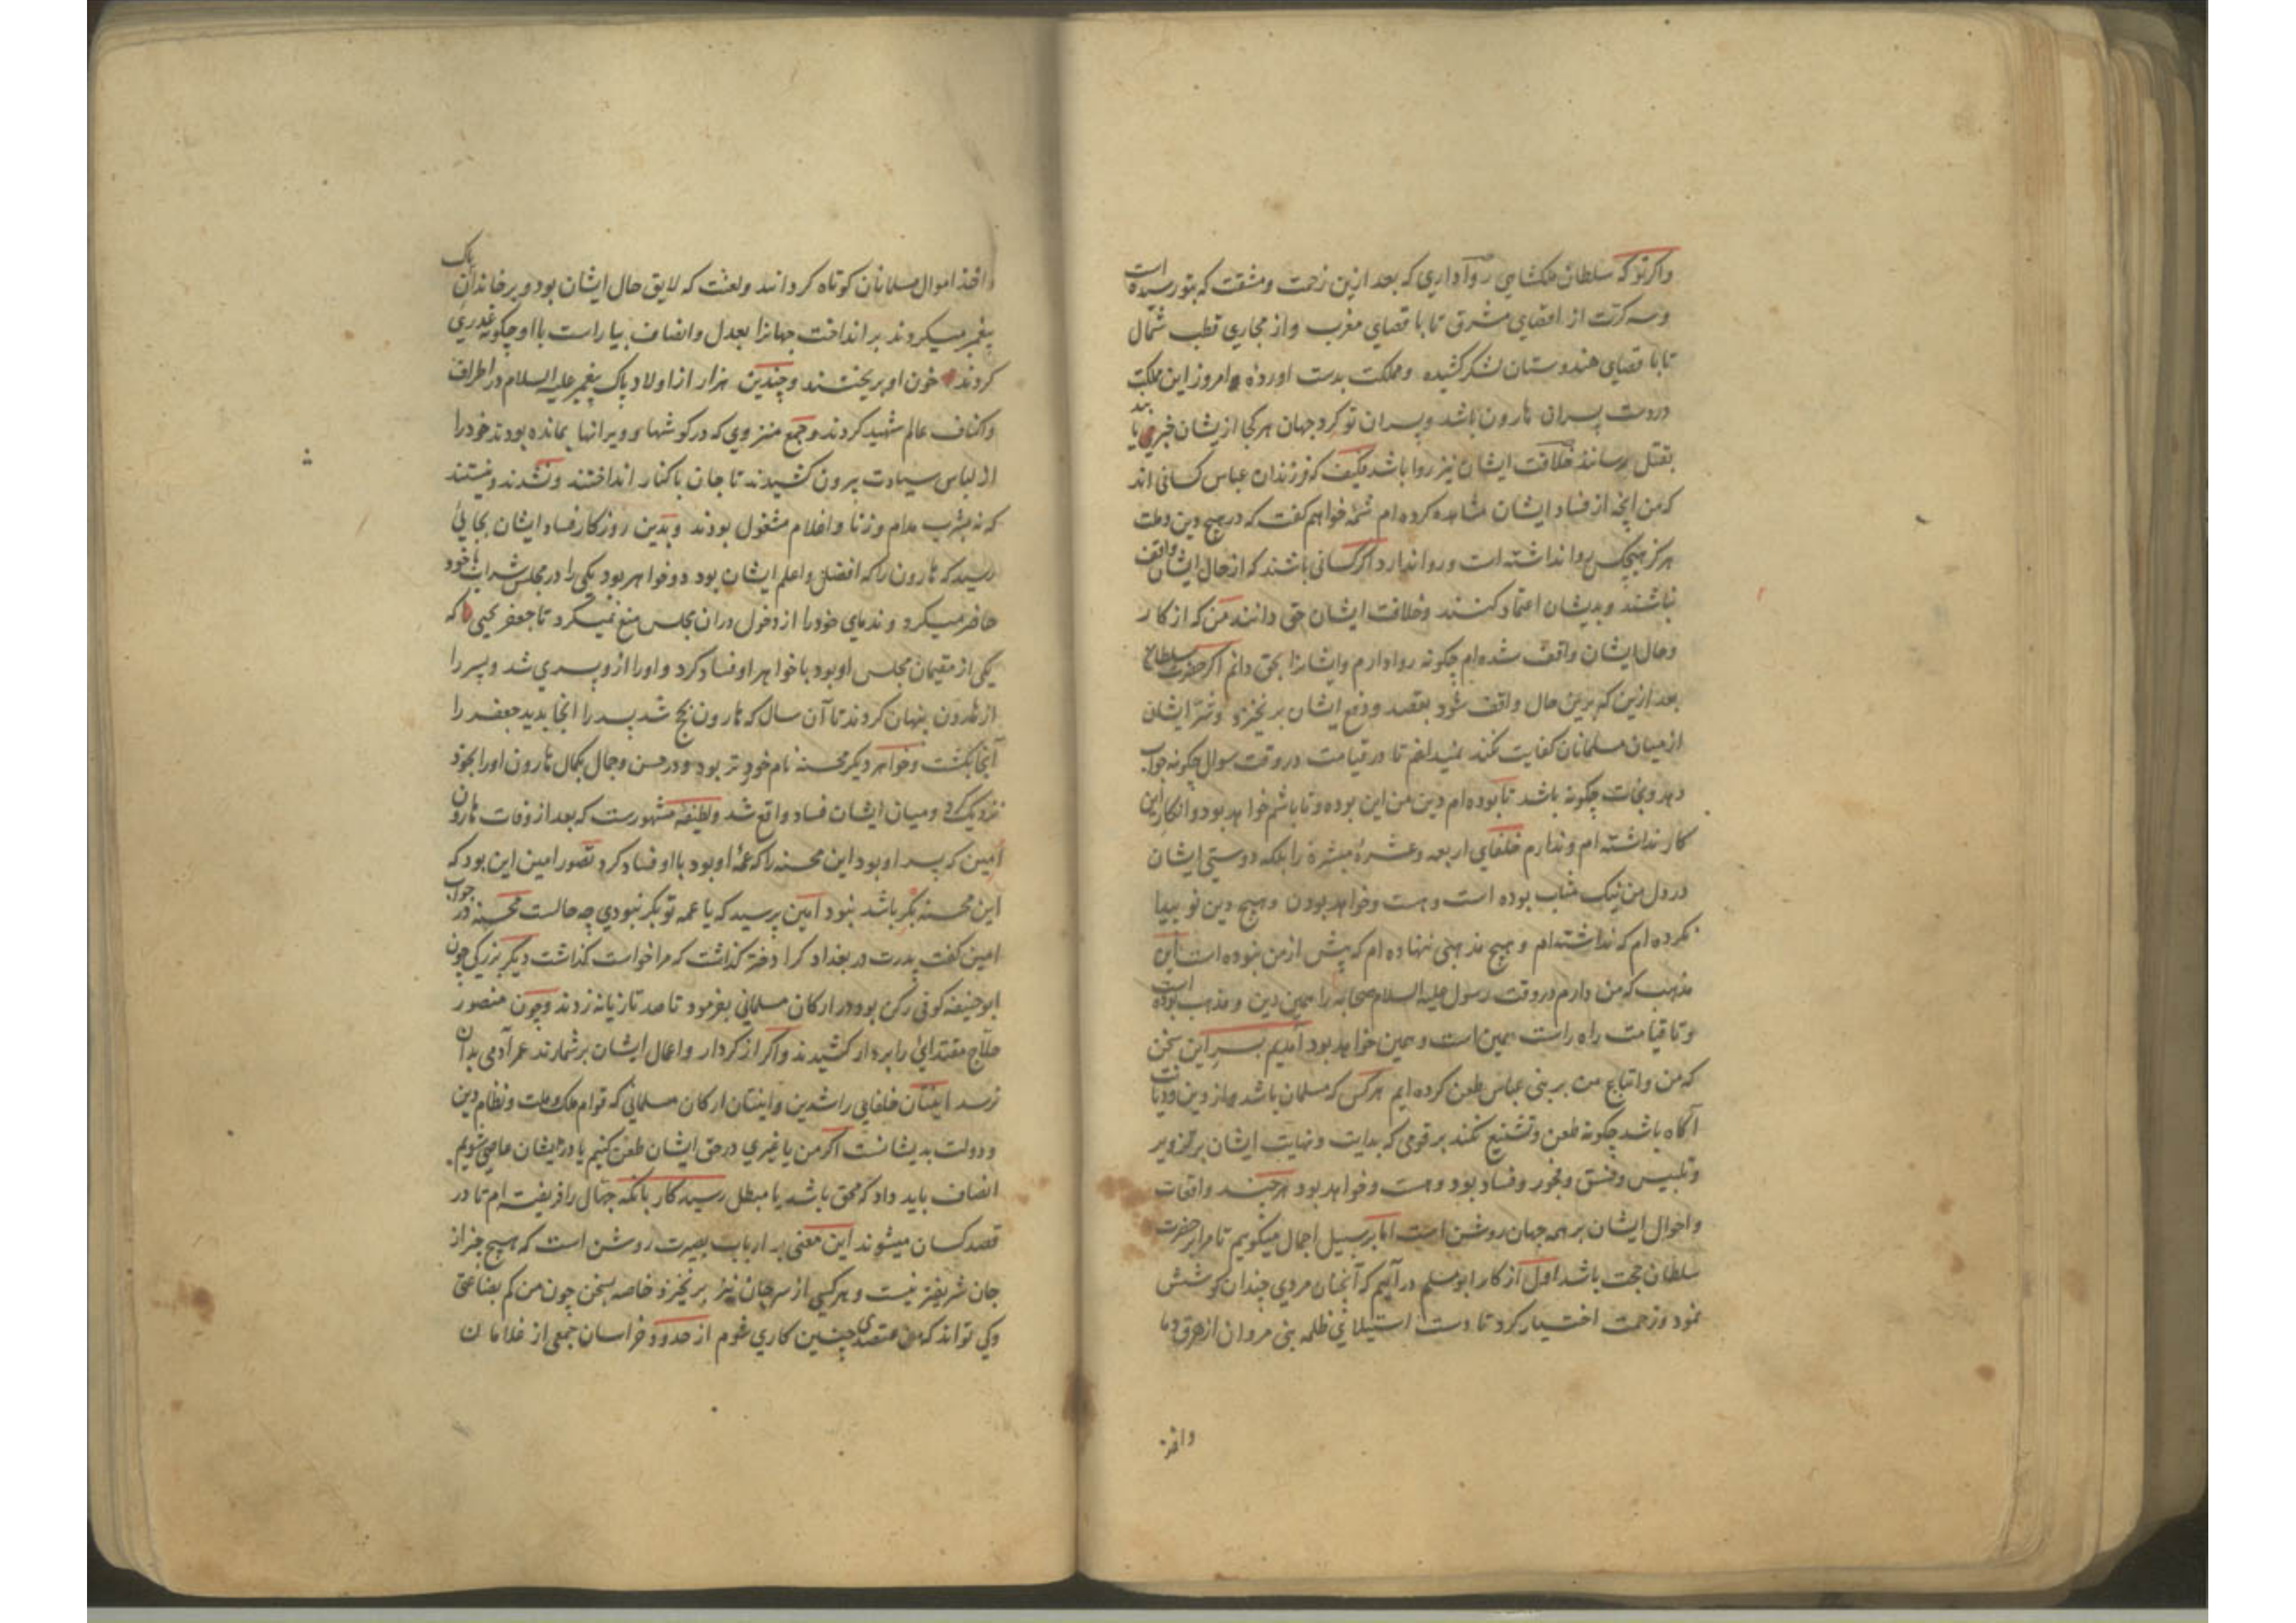 واکر تو که سلطان ملکشاهی روا داری که بعد ازین زحمت و مشقت که بتو رسیده است
و سه کرت از اقصای مشرق تا باقصای مغرب و از مجاری قطب شمال
تا باقصای هندوستان لشکر کشیده و مملکت بدست اورده امروز این ملکت
در دست پسران هارون باشد و پسران تو کرد جهان هر کجا ازیشان خبری یابند
بقتل رسانند خلافت ایشان نیز روا باشد فکیف که فرزندان عباس کسانی اند
که من انچه از فساد ایشان مشاهده کرده ام شمه خواهم کفت که در هیچ دین و ملت
هرکز هیچکس روا نداشته است و روا ندارد اکر کسانی باشند که از حال ایشان واقف
نباشند و بدیشان اعتماد کنند و خلافت ایشان حق دانند من که از کار
و حال ایشان واقف شده ام چکونه روا دارم و ایشانرا بحق دانم اکر حضرت سلطان
بعد ازین که برین حال واقف شود بقصد و دفع ایشان برنخیزد و شر ایشان
از میان مسلمانان کفایت نکند نمیدانم تا در قیامت در وقت سوال چکونه جواب
دهد و نجات چکونه باشد تا بوده ام دین من این بوده و تا باشم خواهد بود و انکار این
کار نداشته ام و ندارم خلفای اربعه و عشره مبشره را بلکه دوستی ایشان
در دل من نیک مثاب بوده است و هست و خواهد بودن و هیچ دین نو پیدا
نکرده ام که نداشته ام و هیچ مذهبی ننهاده ام که پیش از من نبوده است این
مذهب که من دارم در وقت رسول علیه السلام صحابه را همین دین و مذهب بوده است
و تا قیامت راه راست همین است و همین خواهد بود آمدیم بسر این سخن
که من و اتباع من بر بنی عباس طعن کرده ایم هر کس که مسلمان باشد و از دین و دیانت
آکاه باشد چکونه طعن و تشنیع نکند بر قومی که بدایت و نهایت ایشان بر تزویر
و تلبیس و فسق و فجور و فساد بود و هست و خواهد بود هر چند واقعات
و احوال ایشان بر همه جهان روشن است اما بر سبیل اجمال میکویم تا مرا بر حضرت
سلطان حجت باشد اول از کار ابومسلم در آییم که آنچنان مردی چندان کوشش
نمود و زحمت اختیار کرد تا دست استیلای ظلمه بنی مروان از هرق دما
واخذ
و اخذ اموال مسلمانان کوتاه کردانید و لعنت که لایق حال ایشان بود و بر خاندان پاک
پیغمبر میکردند بر انداخت جهانرا بعدل و انصاف بیاراست با او چکونه غدری
کردند خون او بریختند و چندین هزار از اولاد پاک پیغمبر علیه السلام در اطراف
و اکناف عالم شهید کردند و جمع منزوی که در کوشها و ویرانها بمانده بودند خود را
از لباس سیادت بیرون کشیدند تا جان باکنار انداختند و نشدند و نیستند
که نه بشرب مدام و زنا و اغلام مشغول بودند و بدین روزکار فساد ایشان بجایی
رسید که هارون را که افضل و اعلم ایشان بود دو خواهر بود یکی را در مجلس شرابها خود
حاضر میکرد و ندمای خود را از دخول در ان مجلس منع نمیکرد تا جعفر یحیی که
یکی از مقیمان مجلس او بود با خواهر او فساد کرد و او را ازو پسری شد و پسر را
از هارون پنهان کردند تا آن سال که هارون بحج شد پسر را انجا بدید جعفر را
آنجا بکشت و خواهر دیکر محسنه نام خردتر بود و در حسن و جمال بکمال هارون او را بخود
نزدیک کرد و میان ایشان فساد واقع شد و لطیفه مشهورست که بعد از وفات هارون
امین که پسر او بود این محسنه را که عمه او بود با او فساد کرد تصور امین این بود که
این محسنه بکر باشد نبود امین پرسید که یا عمه تو بکر نبودی چه حالست محسنه در جواب
امین کفت پدرت در بغداد کرا دختر کذاشت که مرا خواست کذاشت دیکر بزرکی چون
ابو حنیفه کوفی رکن بود در ارکان مسلمانی بفرمود تا صد تازیانه زدند و چون منصور
حلاج مقتدایی را بر دار کشیدند و اکر از کردار و اعمال ایشان برشمارند عمر آدمی بدان
نرسد اینتان خلفای راشدین و اینتان ارکان مسلمانی که قوام ملک و ملت و نظام دین
و دولت بدیشانست اکر من یا غیری در حق ایشان طعن کنیم یا در ایشان عاصی شویم
انصاف باید داد که محق باشد یا مبطل رسید کار بانکه جهال را فریفته ام تا در
قصد کسان میشوند این معنی بر ارباب بصیرت روشن است که هیچ چیز از
جان شریفتر نیست و هر کسی از سر جان نیز بر نخیزد خاصه بسخن چون من کم بضاعتی
و کی تواند که من متصدی چنین کاری شوم از حدود خراسان جمعی از غلامان